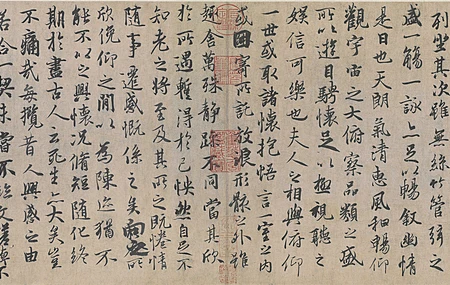 列坐其次雖無絲竹管弦之
盛一觴一詠亦足以暢敘幽情
是日也天朗氣清惠風和暢仰
觀宇宙之大俯察品類之盛
所以遊目騁懷足以極視聽之
娛信可樂也夫人之相與俯仰
一世或取諸懷抱悟言一室之內
或因寄所託放浪形骸之外雖
趣舍萬殊靜躁不同當其欣
於所遇暫得於己快然自足不
知老之將至及其所之既惓情
隨事遷感慨係之矣向之所
欣俛仰之間以為陳迹猶不
能不以之興懷況脩短隨化終
期於盡古人云死生亦大矣豈
不痛哉每攬昔人興感之由
若合一契未嘗不臨文嗟悼不